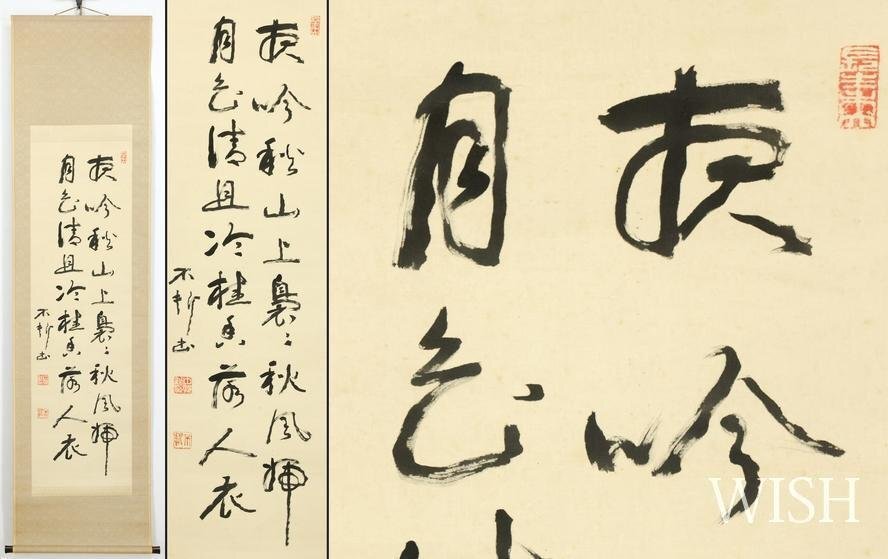 夜吟秋山上裊々秋風歸
月色清且冷桂香落人衣
不折書
夜吟秋山上裊々秋風歸
月色清且冷桂香落人衣
不折書
夜吟
月色
WISH